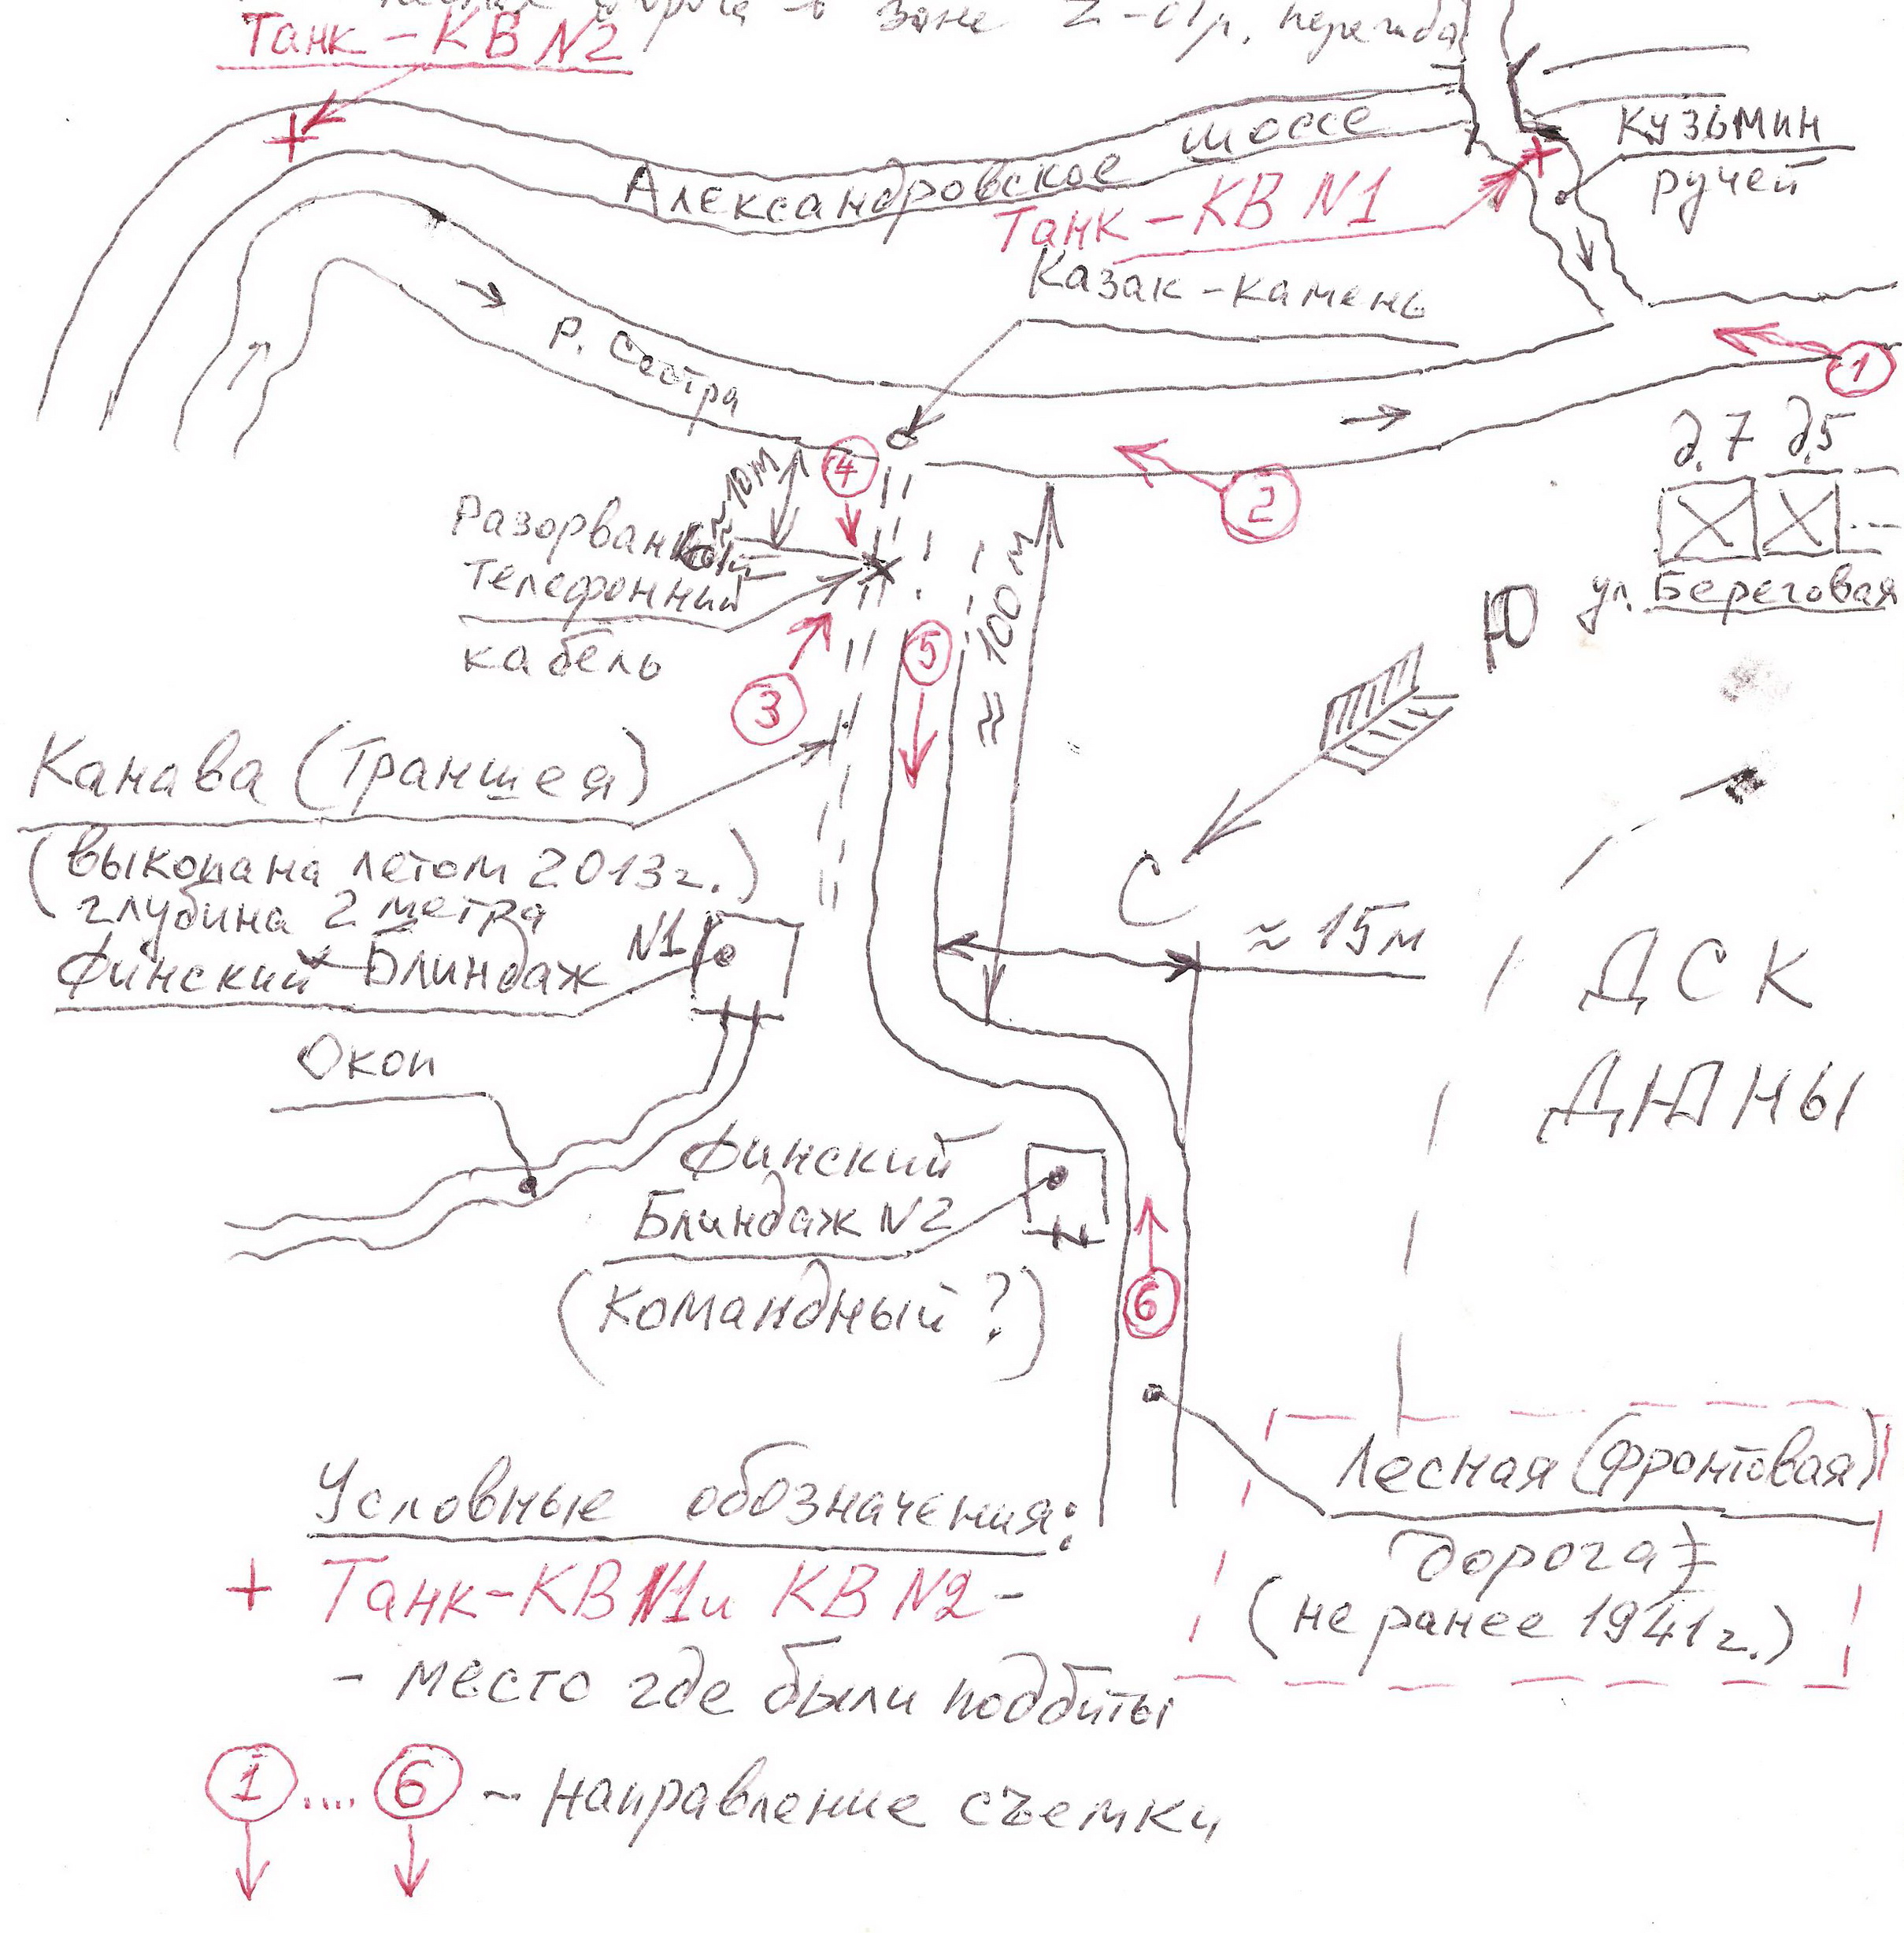 зоне Z-обр. перегиба
Танк-КВ N2
Александровское шоссе
Кузьмин
ручей
Танк-КВ N1
Казак-камень
р. Сестра
1
д.7 д.5
ул. Береговая
4
≈10м
2
Разорванный
телефонний
кабель
≈100м
3
5
Ю
С
Канава (Траншея)
(выкопана летом 2013г.)
глубина 2 метра
Финский Блиндаж N1
≈15м
ДСК
ДЮНЫ
Окоп
Финский
Блиндаж N2
(командный?)
6
Лесная (фронтовая)
дорога
(не ранее 1941г.)
Условные обозначения:
+ Танк-КВ N1 и КВ N2 -
- место где были подбиты
1....6 - направление съемки